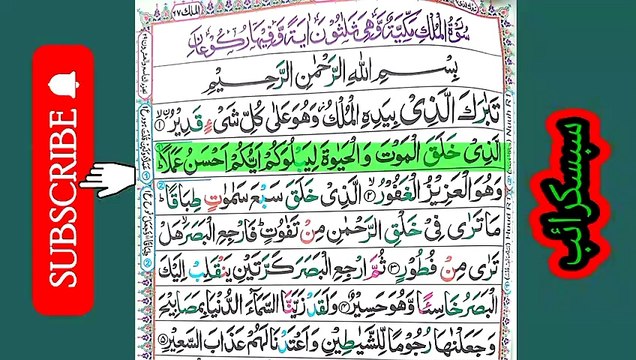 الملك ٦٧
سُوْرَةُ الْمُلْكِ مَكِّيَّةٌ وَّهِيَ ثَلٰثُوْنَ اٰيَةً وَّفِيْهَا رُكُوْعَانِ
بِسْمِ اللّٰهِ الرَّحْمٰنِ الرَّحِيْمِ
تَبٰرَكَ الَّذِیْ بِیَدِهِ الْمُلْكُ وَهُوَ عَلٰی كُلِّ شَیْءٍ قَدِیْرُ ۙ﴿۱﴾
الَّذِیْ خَلَقَ الْمَوْتَ وَ الْحَیٰوةَ لِیَبْلُوَكُمْ اَیُّكُمْ اَحْسَنُ عَمَلًا ؕ
وَهُوَ الْعَزِیْزُ الْغَفُوْرُ ﴿۲﴾ الَّذِیْ خَلَقَ سَبْعَ سَمٰوٰتٍ طِبَاقًا ؕ
مَا تَرٰی فِیْ خَلْقِ الرَّحْمٰنِ مِنْ تَفٰوُتٍ ؕ فَارْجِعِ الْبَصَرَ ۙ هَلْ
تَرٰی مِنْ فُطُوْرٍ ﴿۳﴾ ثُمَّ ارْجِعِ الْبَصَرَ كَرَّتَیْنِ یَنْقَلِبْ اِلَیْكَ
الْبَصَرُ خَاسِئًا وَّهُوَ حَسِیْرٌ ﴿۴﴾ وَلَقَدْ زَیَّنَّا السَّمَآءَ الدُّنْیَا بِمَصَابِیْحَ
وَجَعَلْنٰهَا رُجُوْمًا لِّلشَّیٰطِیْنِ وَاَعْتَدْنَا لَهُمْ عَذَابَ السَّعِیْرِ ﴿۵﴾
SUBSCRIBE
سبسکرائب